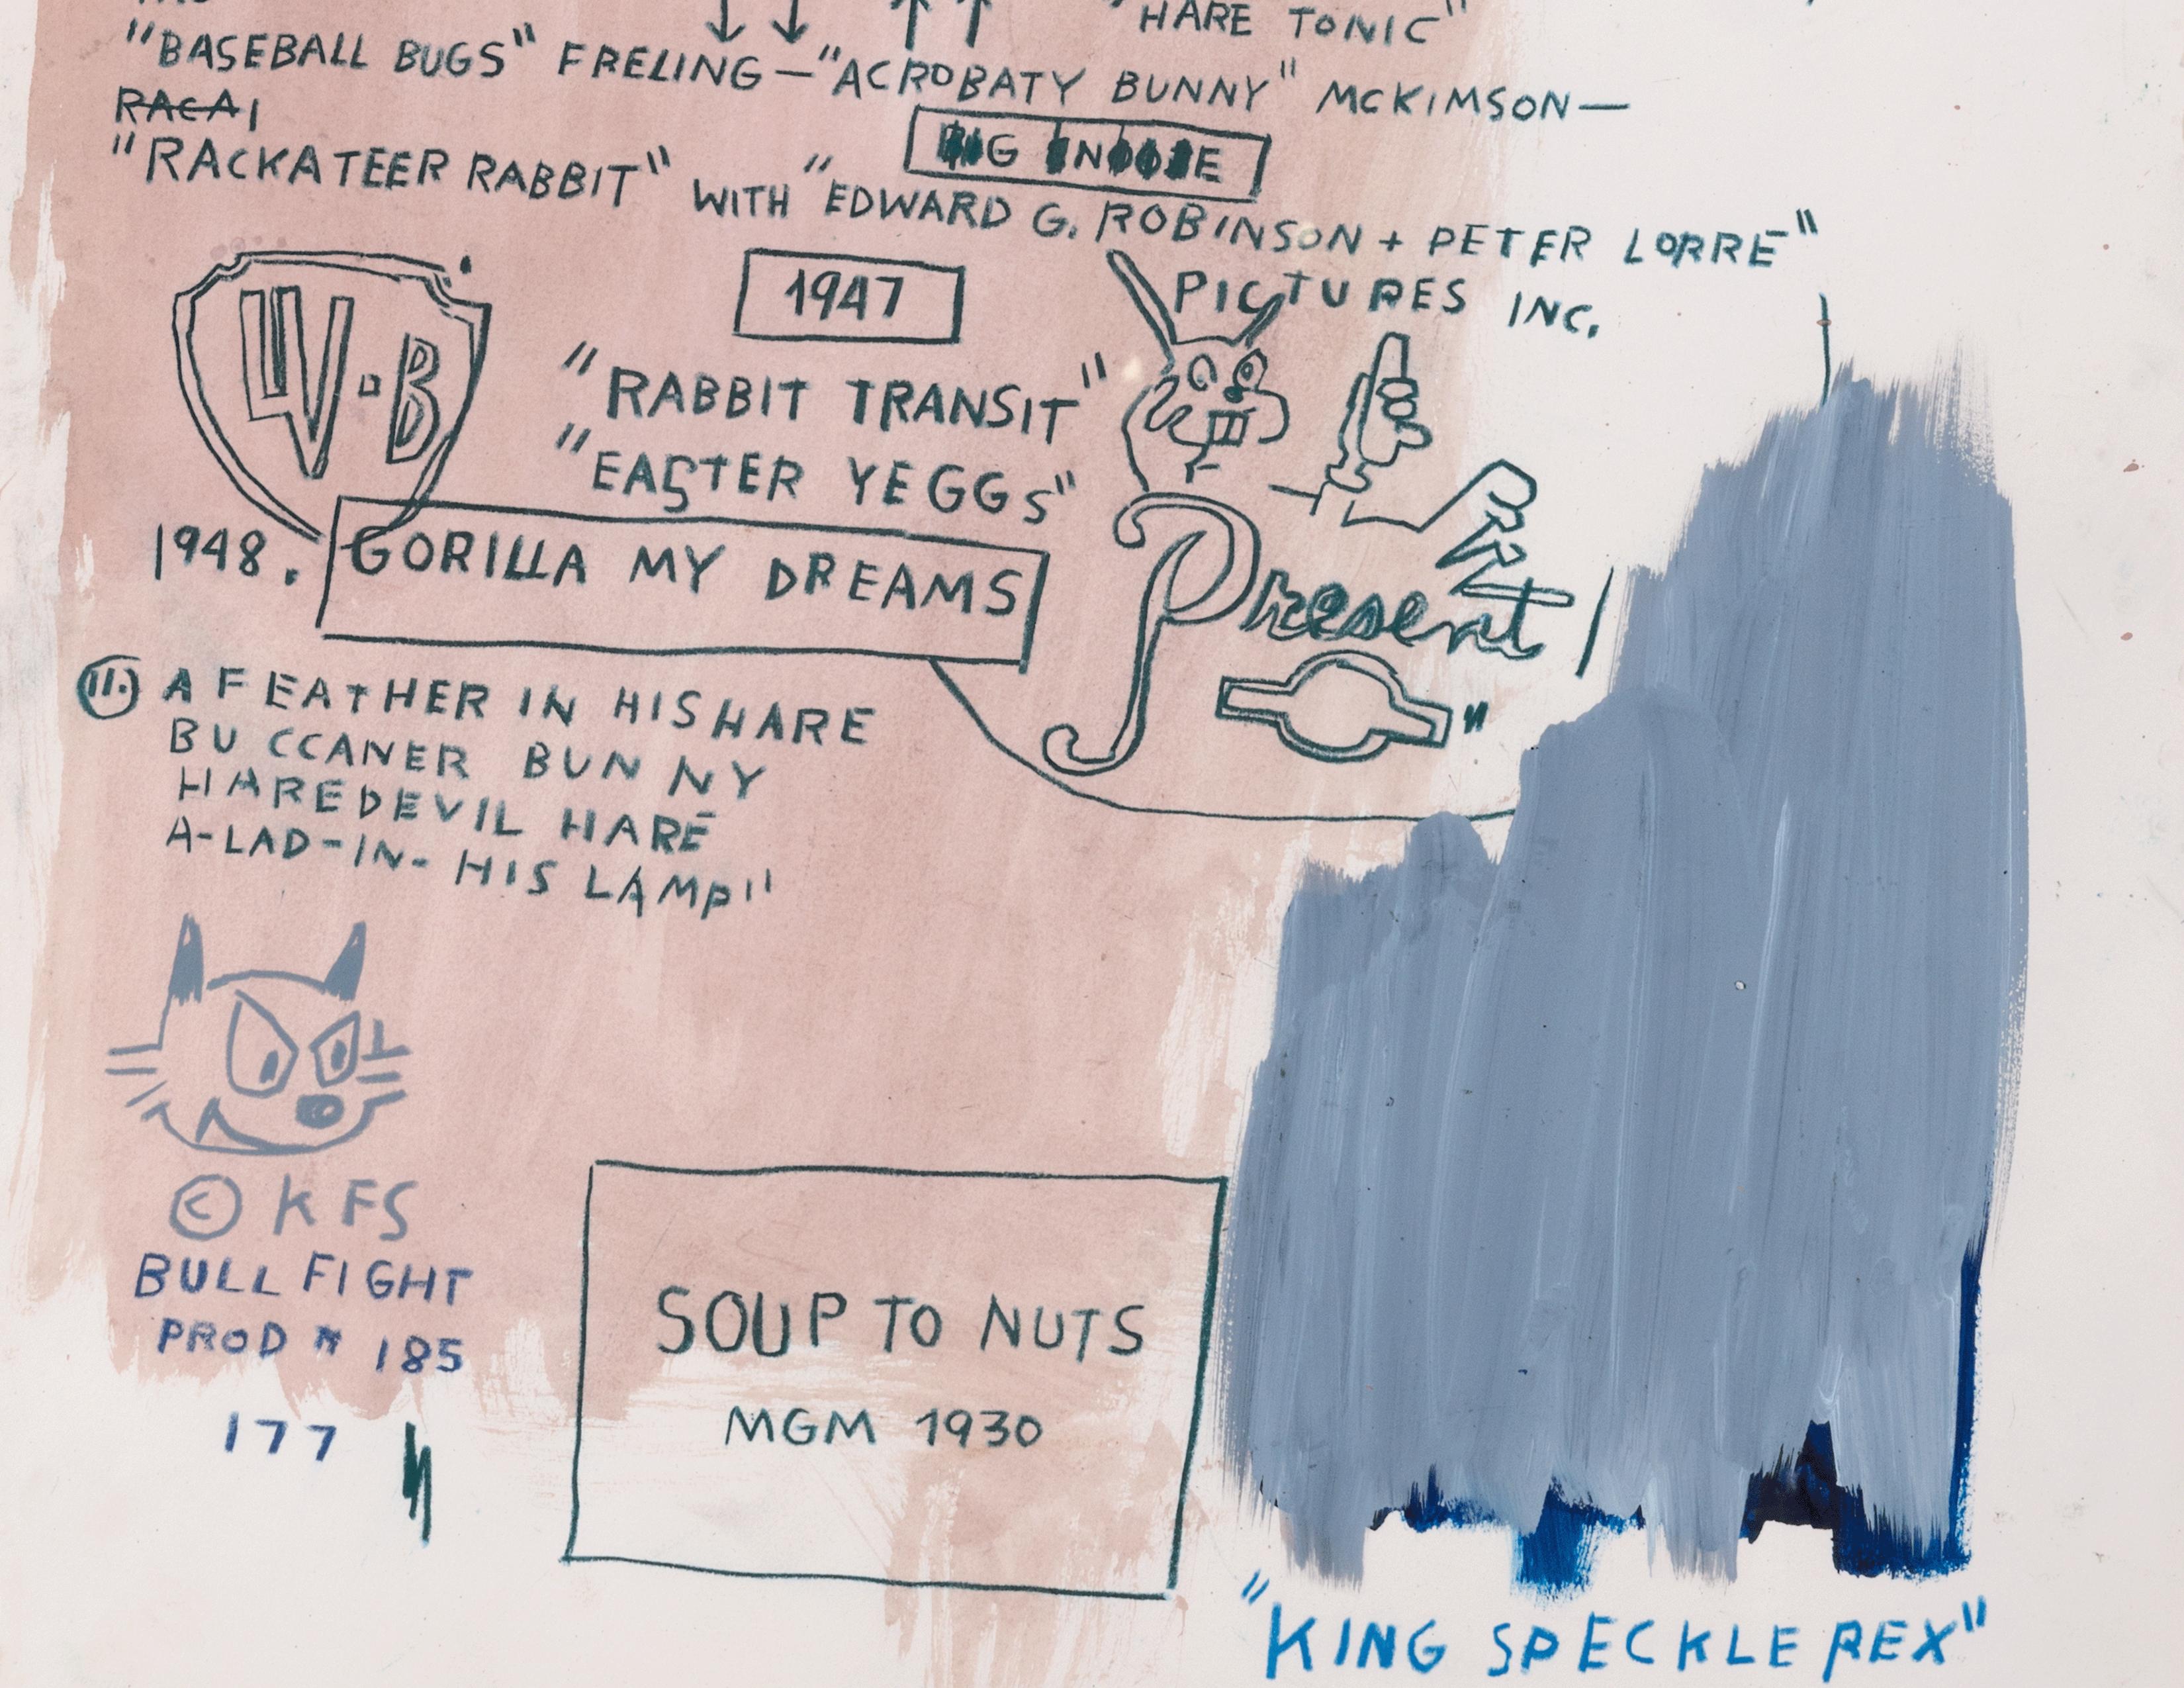 "HARE TONIC"
"BASEBALL BUGS" FRELING—"ACROBATY BUNNY" MCKIMSON—
RACAI
BIG SNOOZE
"RACKATEER RABBIT" WITH "EDWARD G. ROBINSON + PETER LORRE"
PICTURES INC.
W·B
1947
"RABBIT TRANSIT"
"EASTER YEGGS"
Present
1948. GORILLA MY DREAMS
11. A FEATHER IN HIS HARE
BUCCANER BUNNY
HAREDEVIL HARE
A-LAD-IN-HIS LAMP"
© KFS
BULL FIGHT
PROD # 185
177
SOUP TO NUTS
MGM 1930
"KING SPECKLE REX"